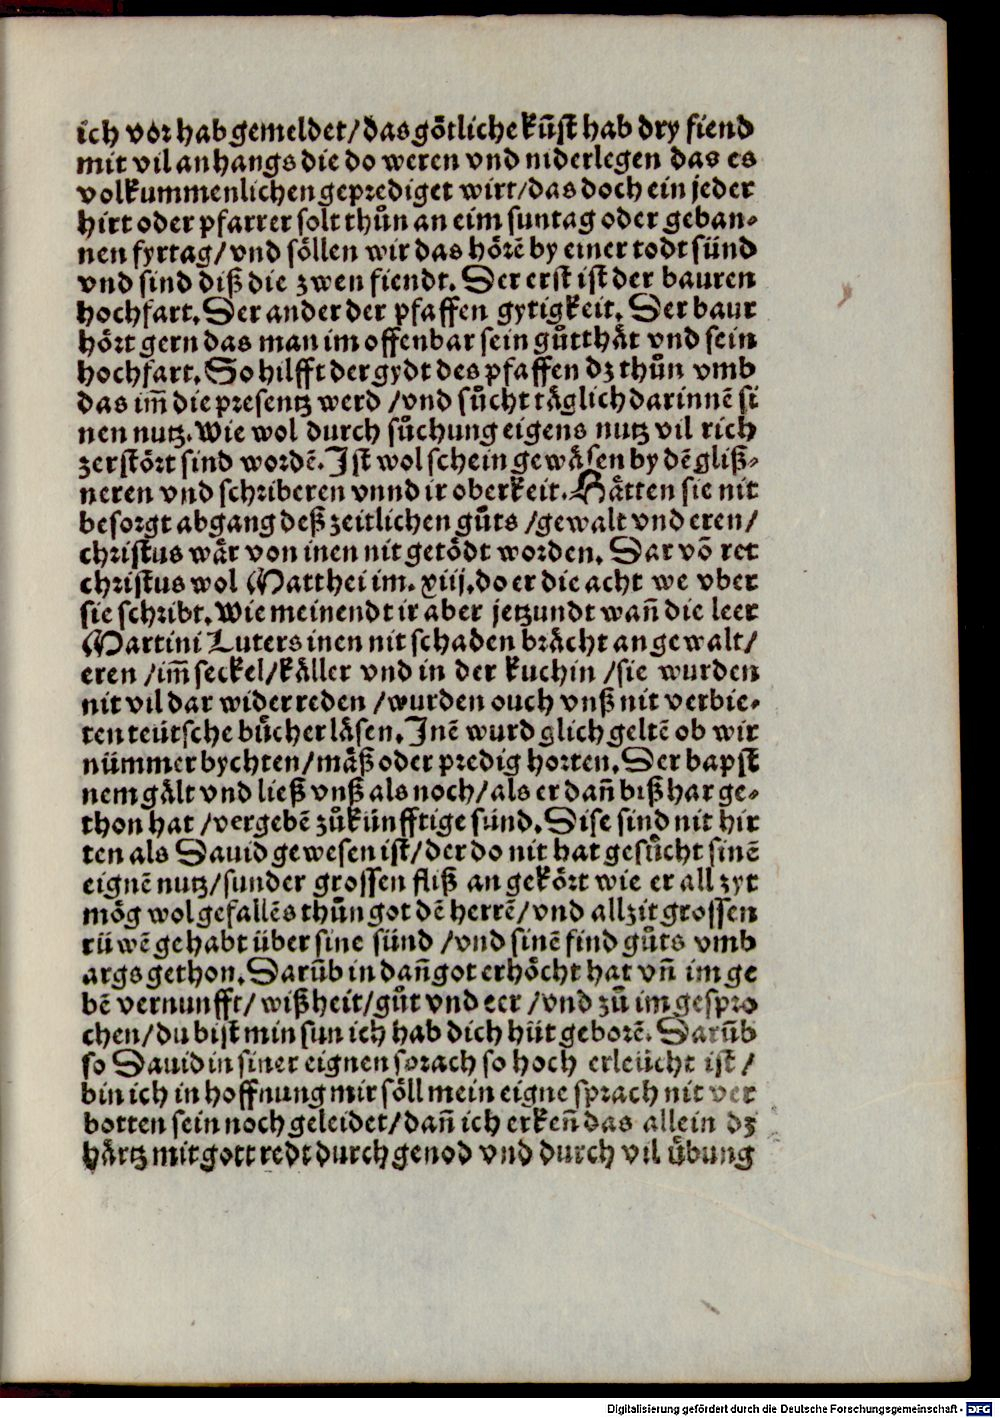 ich vor hab gemeldet/das götliche kũst hab dry fiend
mit vil anhangs die do weren vnd niderlegen das es
volkummenlichen geprediget wirt/das doch ein jeder
hirt oder pfarrer solt thůn an eim suntag oder geban⸗
nen fyrtag/vnd söllen wir das hörẽ by einer todt sünd
vnd sind diß die zwen fiendt. Der erst ist der bauren
hochfart. Der ander der pfaffen gytigkeit. Der baur
hört gern das man im offenbar sein gůtthät vnd sein
hochfart. So hilfft der gydt des pfaffen dz thůn vmb
das im̃ die presentz werd /vnd sůcht täglich darinnẽ si
nen nutz. Wie wol durch sůchung eigens nutz vil rich
zerstört sind wordẽ. Ist wol schein gewäsen by dẽ gliß⸗
neren vnd schriberen vnnd ir oberkeit. Hätten sie nit
besorgt abgang deß zeitlichen gůts /gewalt vnd eren/
christus wär von inen nit getödt worden. Dar võ ret
christus wol Matthei im. xiij. do er die acht we vber
sie schribt. Wie meinendt ir aber jetzundt wañ die leer
Martini Luters inen nit schaden brächt an gewalt/
eren /im̃ seckel/käller vnd in der kuchin /sie wurden
nit vil dar wider reden /wurden ouch vnß nit verbie⸗
ten teütsche bůcher läsen. Inẽ wurd glich geltẽ ob wir
nümmer bychten/mäß oder predig horten. Der bapst
nem gält vnd ließ vnß als noch/als er dañ biß har ge⸗
thon hat /vergebẽ zůkünfftige sünd. Dise sind nit hir
ten als Dauid gewesen ist/der do nit hat gesůcht sinẽ
eignẽ nutz/sunder grossen fliß an gekört wie er all zyt
mög wolgefallẽs thůn got dẽ herrẽ/vnd allzit grossen
rüwẽ gehabt über sine sünd /vnd sinẽ find gůts vmb
args gethon. Darũb in dañ got erhöcht hat vñ im ge
bẽ vernunfft/ wißheit/gůt vnd eer /vnd zů im gespro
chen/du bist min sun ich hab dich hüt geborẽ. Darũb
so Dauid in siner eignen sprach so hoch erleücht ist /
bin ich in hoffnung mir söll mein eigne sprach nit ver
botten sein noch geleidet/dañ ich erkeñ das allein dz
härtz mit gott redt durch genod vnd durch vil übung
Digitalisierung gefördert durch die Deutsche Forschungsgemeinschaft - DFG